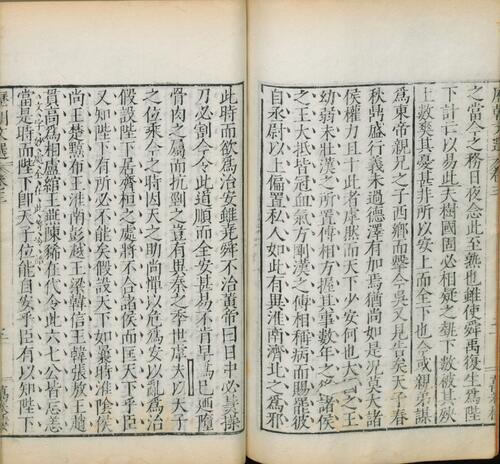 之當今之務日夜念此至孰也雖使舜禹復生爲陛
下計亡以易此夫樹國固必相疑之埶下數被其殃
上數爽其憂甚非所以安上而全下也今或親弟謀
爲東帝親兄之子西鄉而擊今吳又見告矣天子春
秋鼎盛行義未過德澤有加焉猶尚如是況莫大諸
侯權力且十此者虖然而天下少安何也大國之王
幼弱未壯漢之所置傅相方握其事數年之後諸侯
之王大抵皆冠血氣方剛漢之傅相稱病而賜罷彼
自丞尉以上偏置私人如此有異淮南濟北之爲邪
此時而欲爲治安雖堯舜不治黃帝曰日中必熭操
刀必割今令此道順而全安甚易不肯早爲已乃墮
骨肉之屬而抗剄之豈有異秦之季世虖夫以天子
之位乘今之時因天之助尚憚以危爲安以亂爲治
假設陛下居齊桓之處將不合諸侯而匡天下乎臣
又知陛下有所必不能矣假設天下如曩時淮陰侯
尚王楚黥布王淮南彭越王梁韓信王韓張敖王趙
貫高爲相盧綰王燕陳豨在代令此六七公皆亡恙
當是時而陛下即天子位能自安乎臣有以知陛下